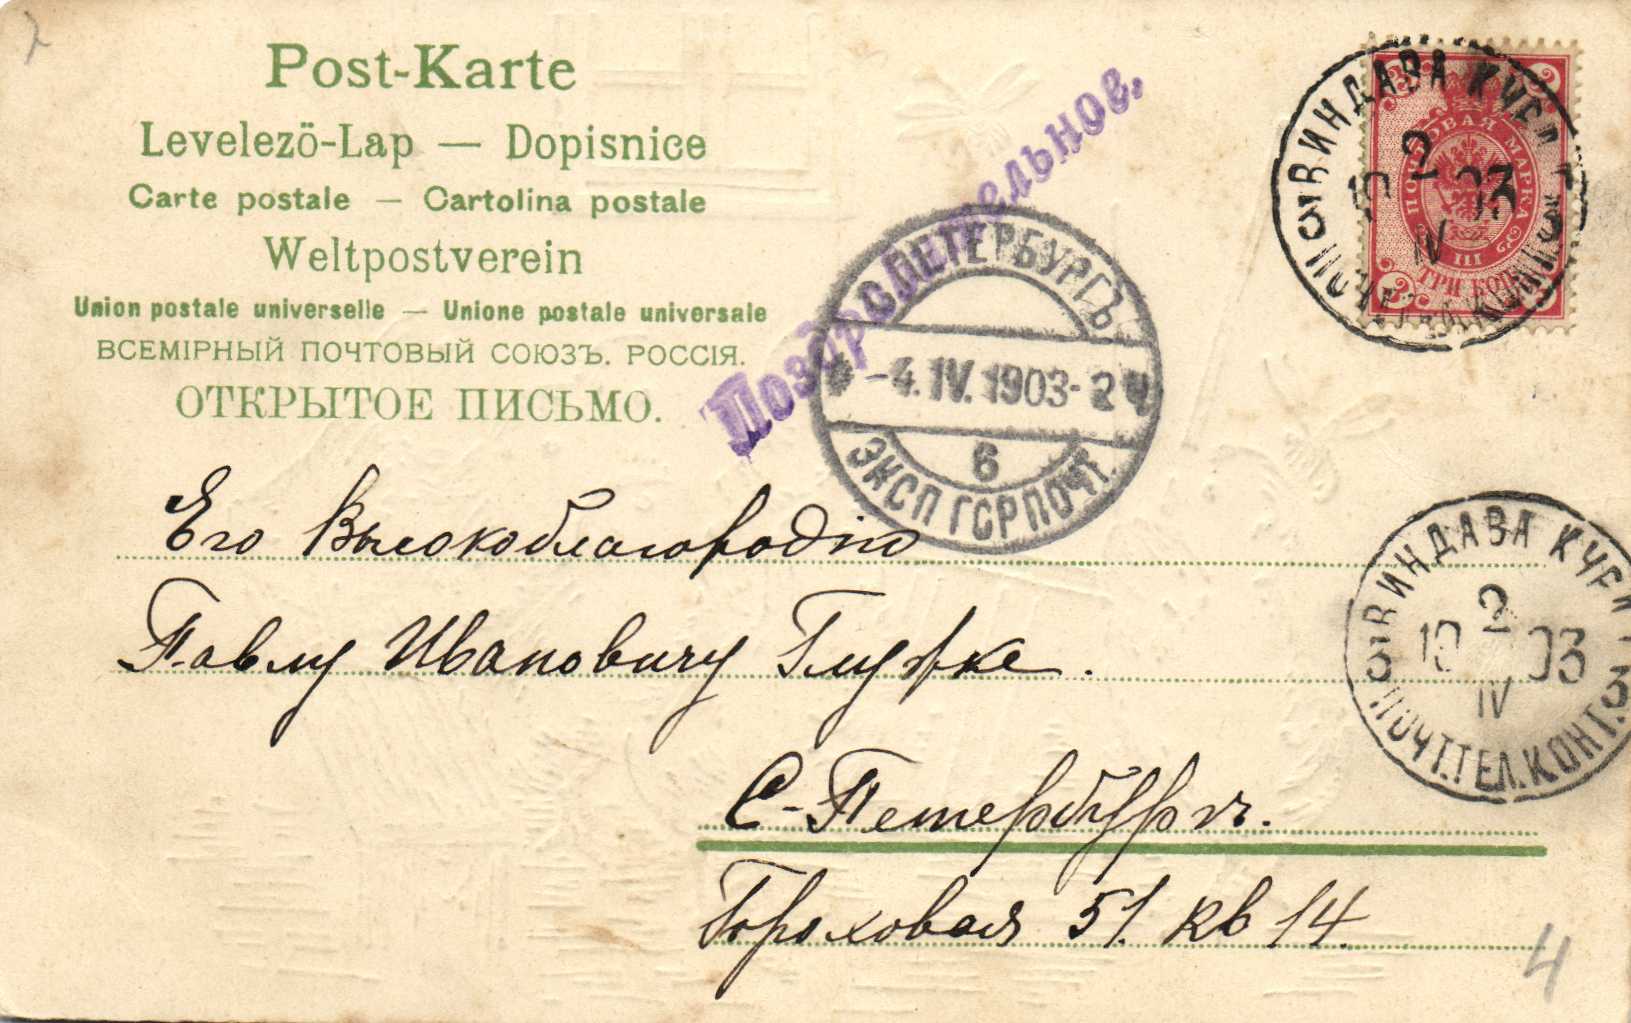 Post-Karte
Levelezö-Lap — Dopisnice
Carte postale — Cartolina postale
Weltpostverein
Union postale universelle — Unione postale universale
ВСЕМІРНЫЙ ПОЧТОВЫЙ СОЮЗЪ. РОССІЯ.
ОТКРЫТОЕ ПИСЬМО.
Поздравительное.
С.ПЕТЕРБУРГЪ
-4.IV.1903-2Ч
6
ЭКСП ГОР ПОЧТ.
ВИНДАВА КУРЛ
2
1903
IV
3 3
ПОЧТ.ТЕЛ.КОНТ.
ПОЧТОВАЯ МАРКА
III
ТРИ КОП
Его Высокоблагородію
Павлу Ивановичу Глужке.
ВИНДАВА КУРЛ
2
1903
IV
3 3
ПОЧТ.ТЕЛ.КОНТ.
С-Петербургъ.
Гороховая 51. кв 14.
4